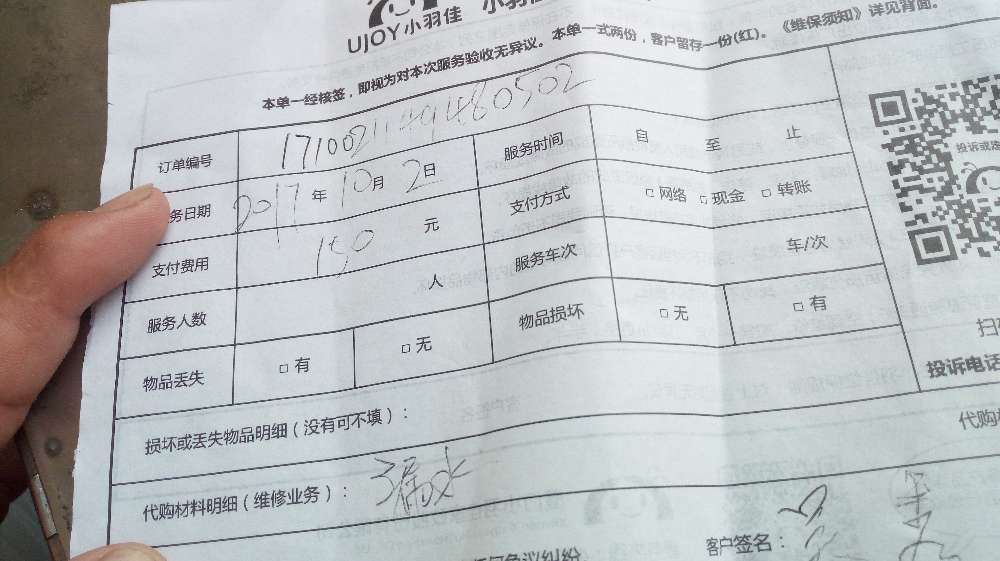 UJOY小羽佳 小羽佳
本单一经核签，即视为对本次服务验收无异议。本单一式两份，客户留存一份(红)。《维保须知》详见背面。
订单编号 171002114948 0502
务日期 2017年10月2日 服务时间 自 至 止
支付费用 150元 支付方式 □网络 □现金 □转账
服务人数 人 服务车次 车/次
物品丢失 □有 □无 物品损坏 □无 □有
损坏或丢失物品明细（没有可不填）：
代购材料明细（维修业务）： 漏水
代购
客户签名：
扫
投诉电话